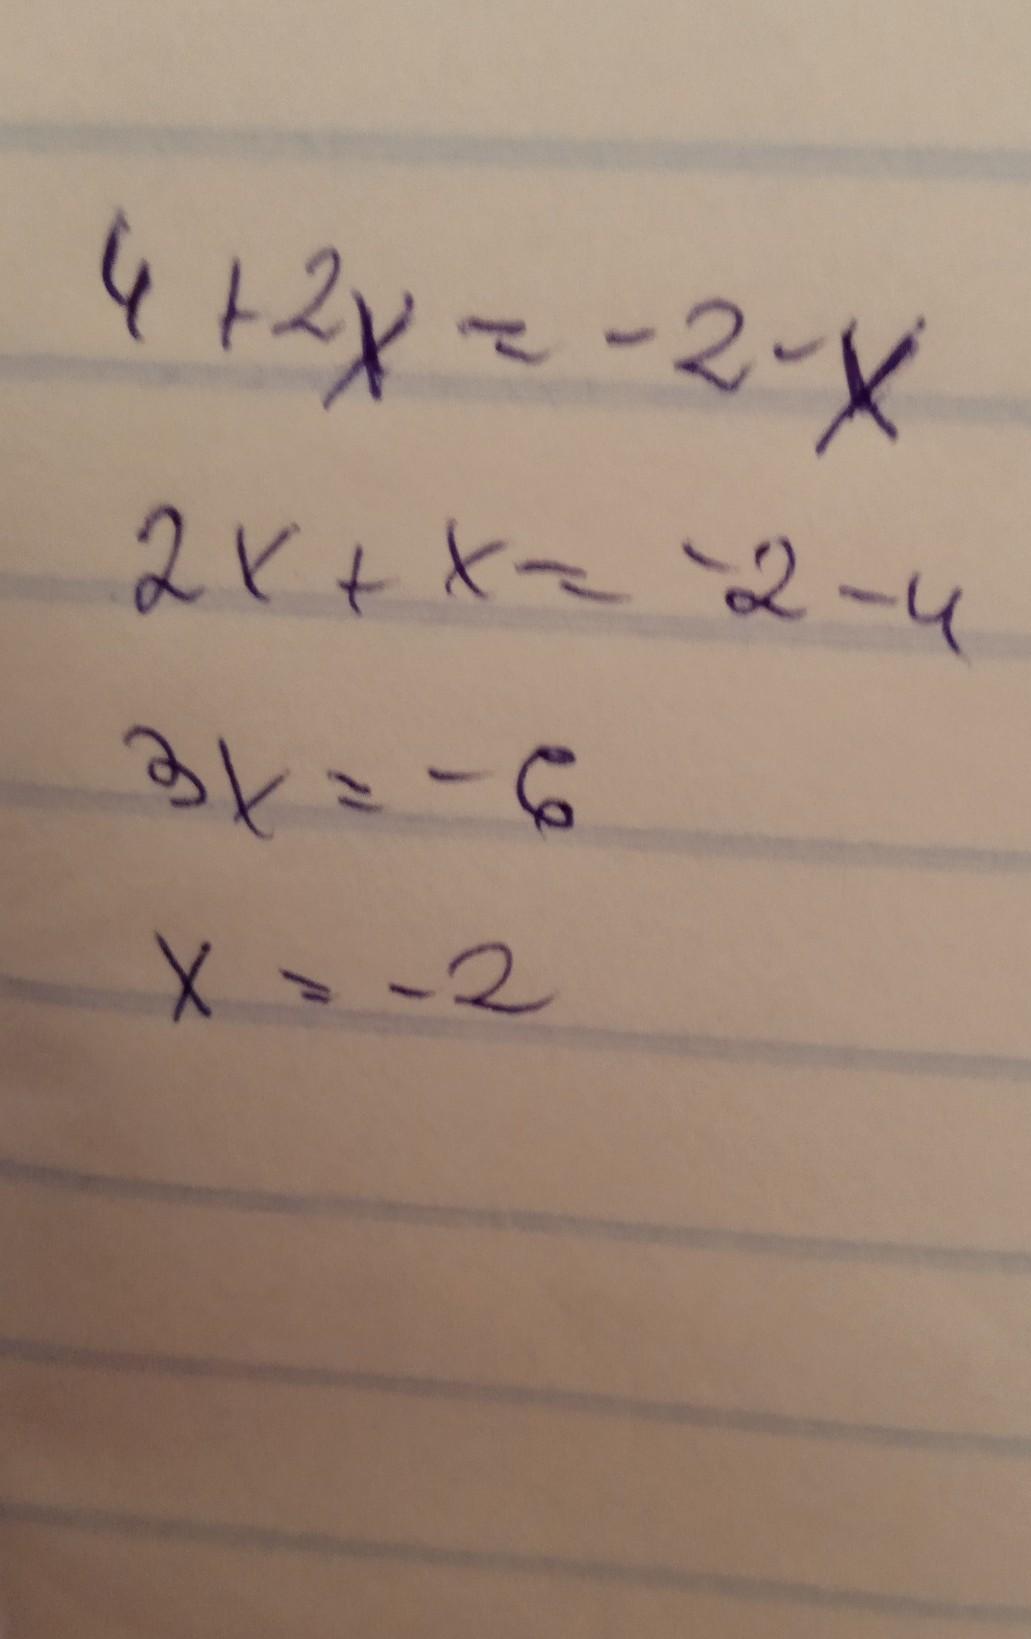 4 + 2x = -2 - x
2x + x = -2 - 4
3x = -6
x = -2